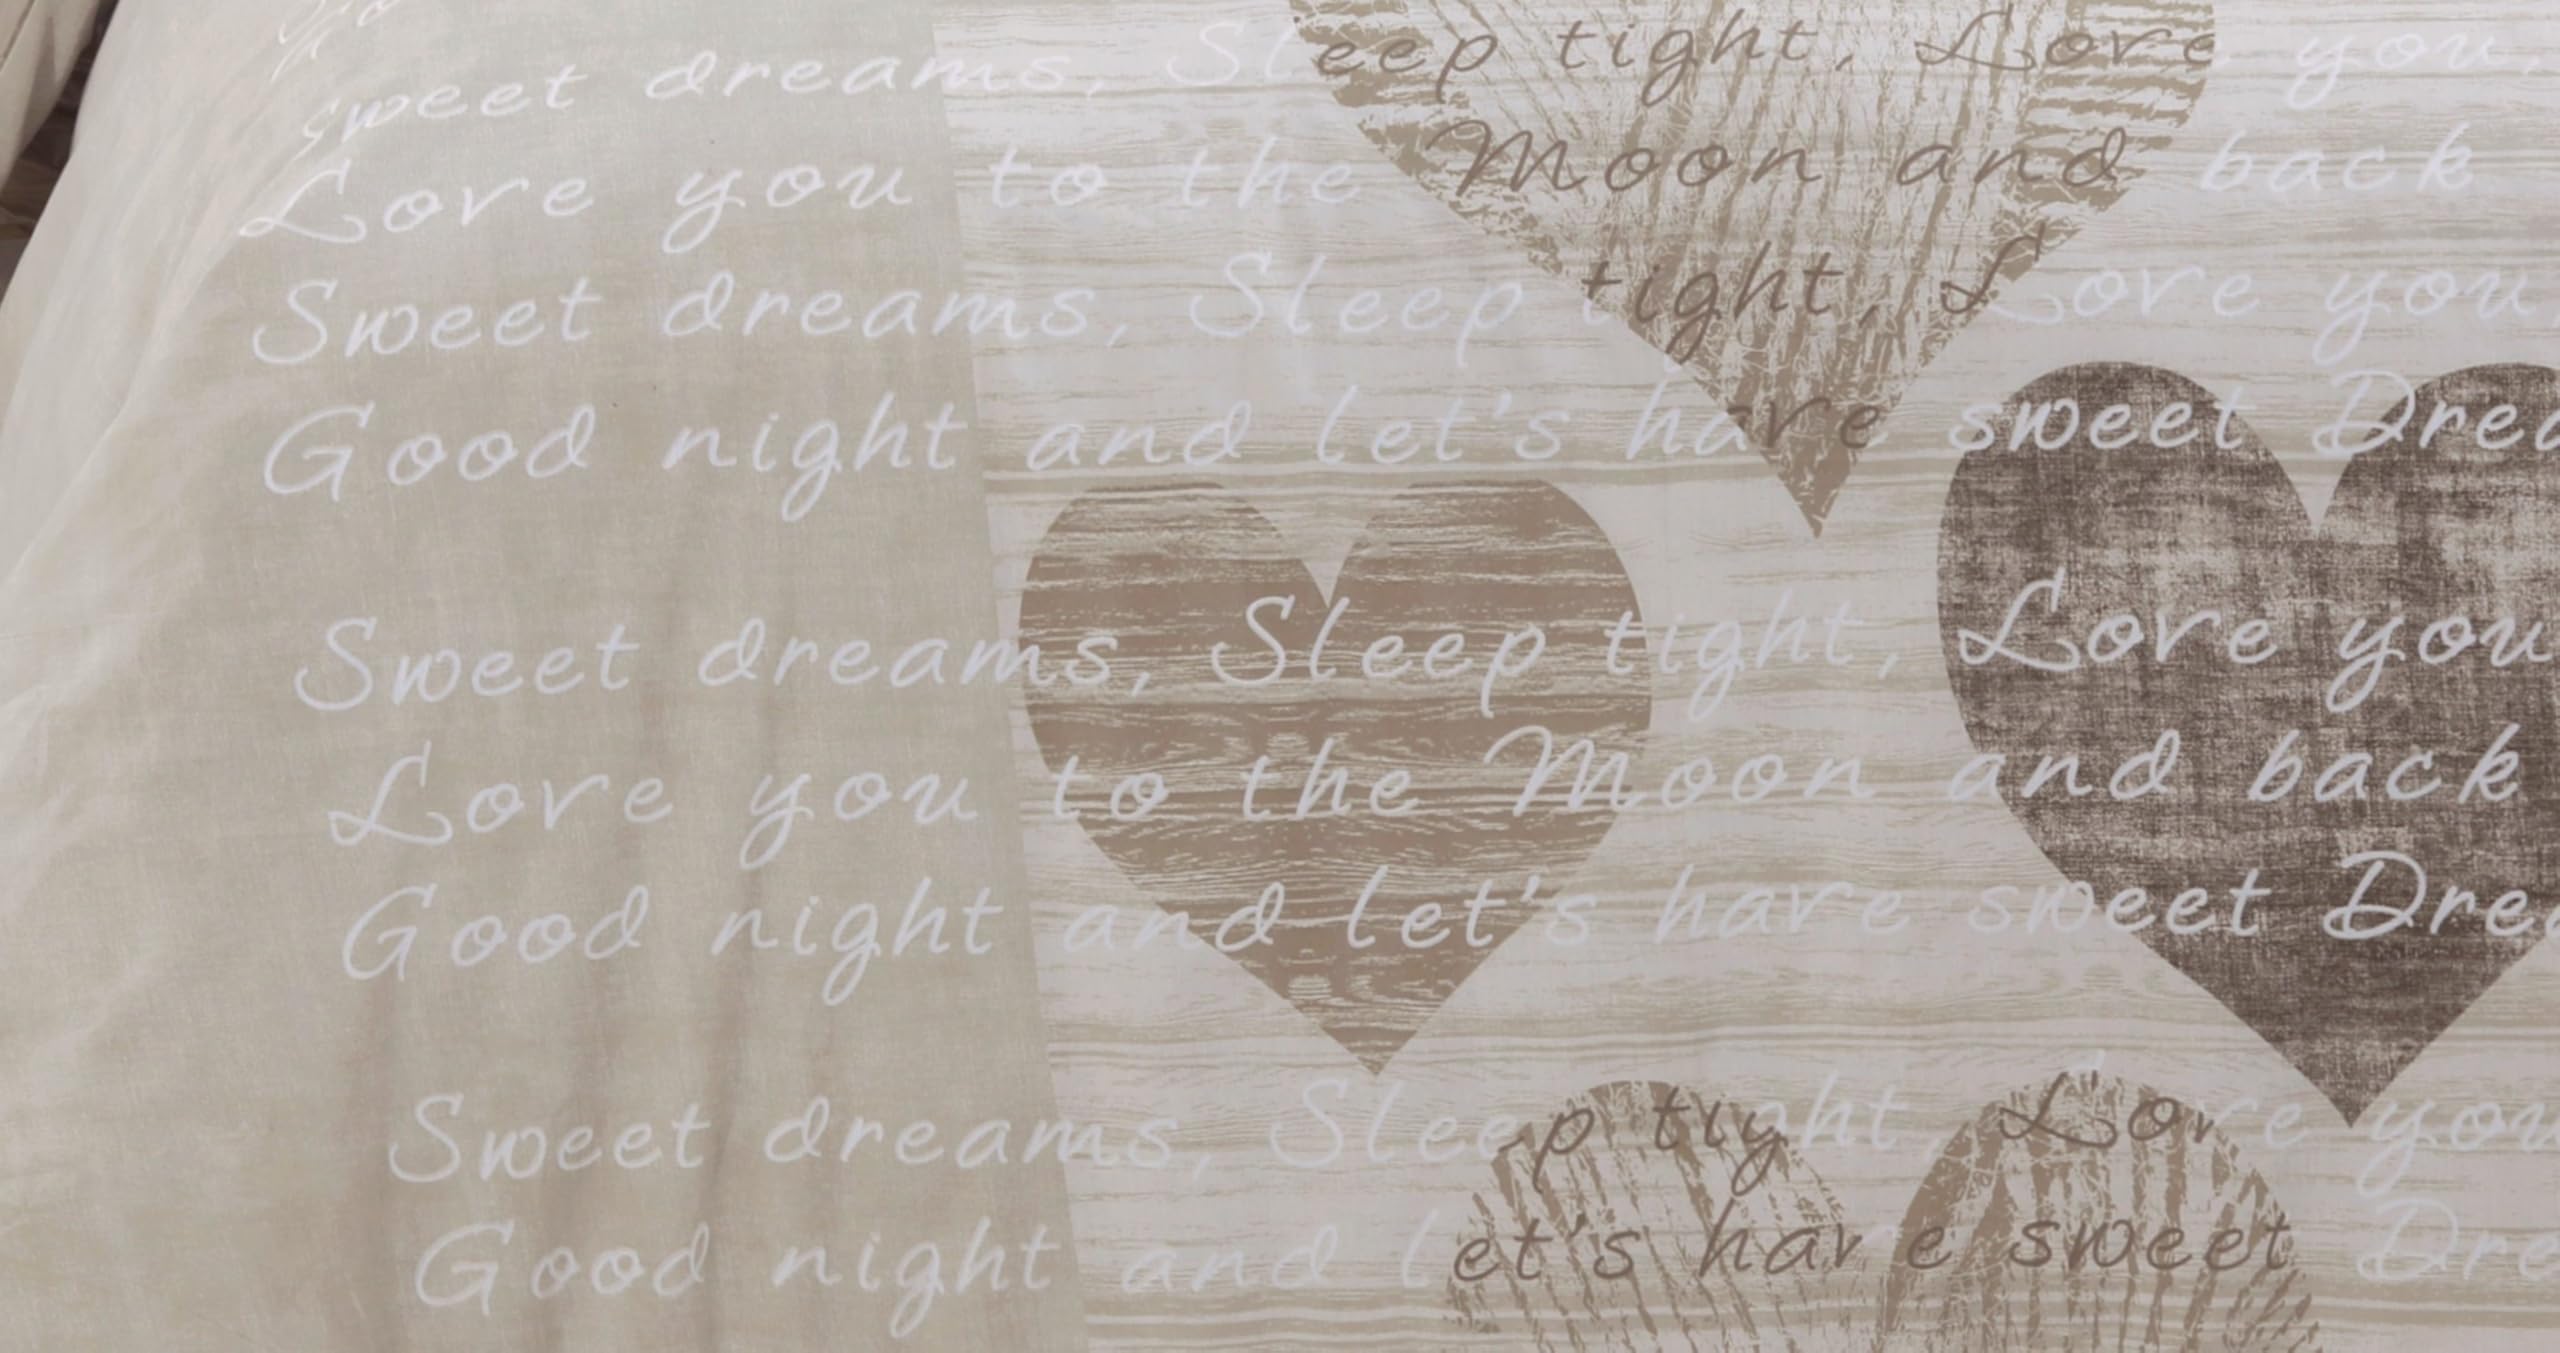 sweet dreams, Sleep tight, Love you,
Love you to the Moon and back
Sweet dreams, Sleep tight, Love you,
Good night and let's have sweet Drea
Sweet dreams, Sleep tight, Love you
Love you to the Moon and back
Good night and let's have sweet Drea
Sweet dreams, Sleep tight, Love you
Good night and let's have sweet Dre